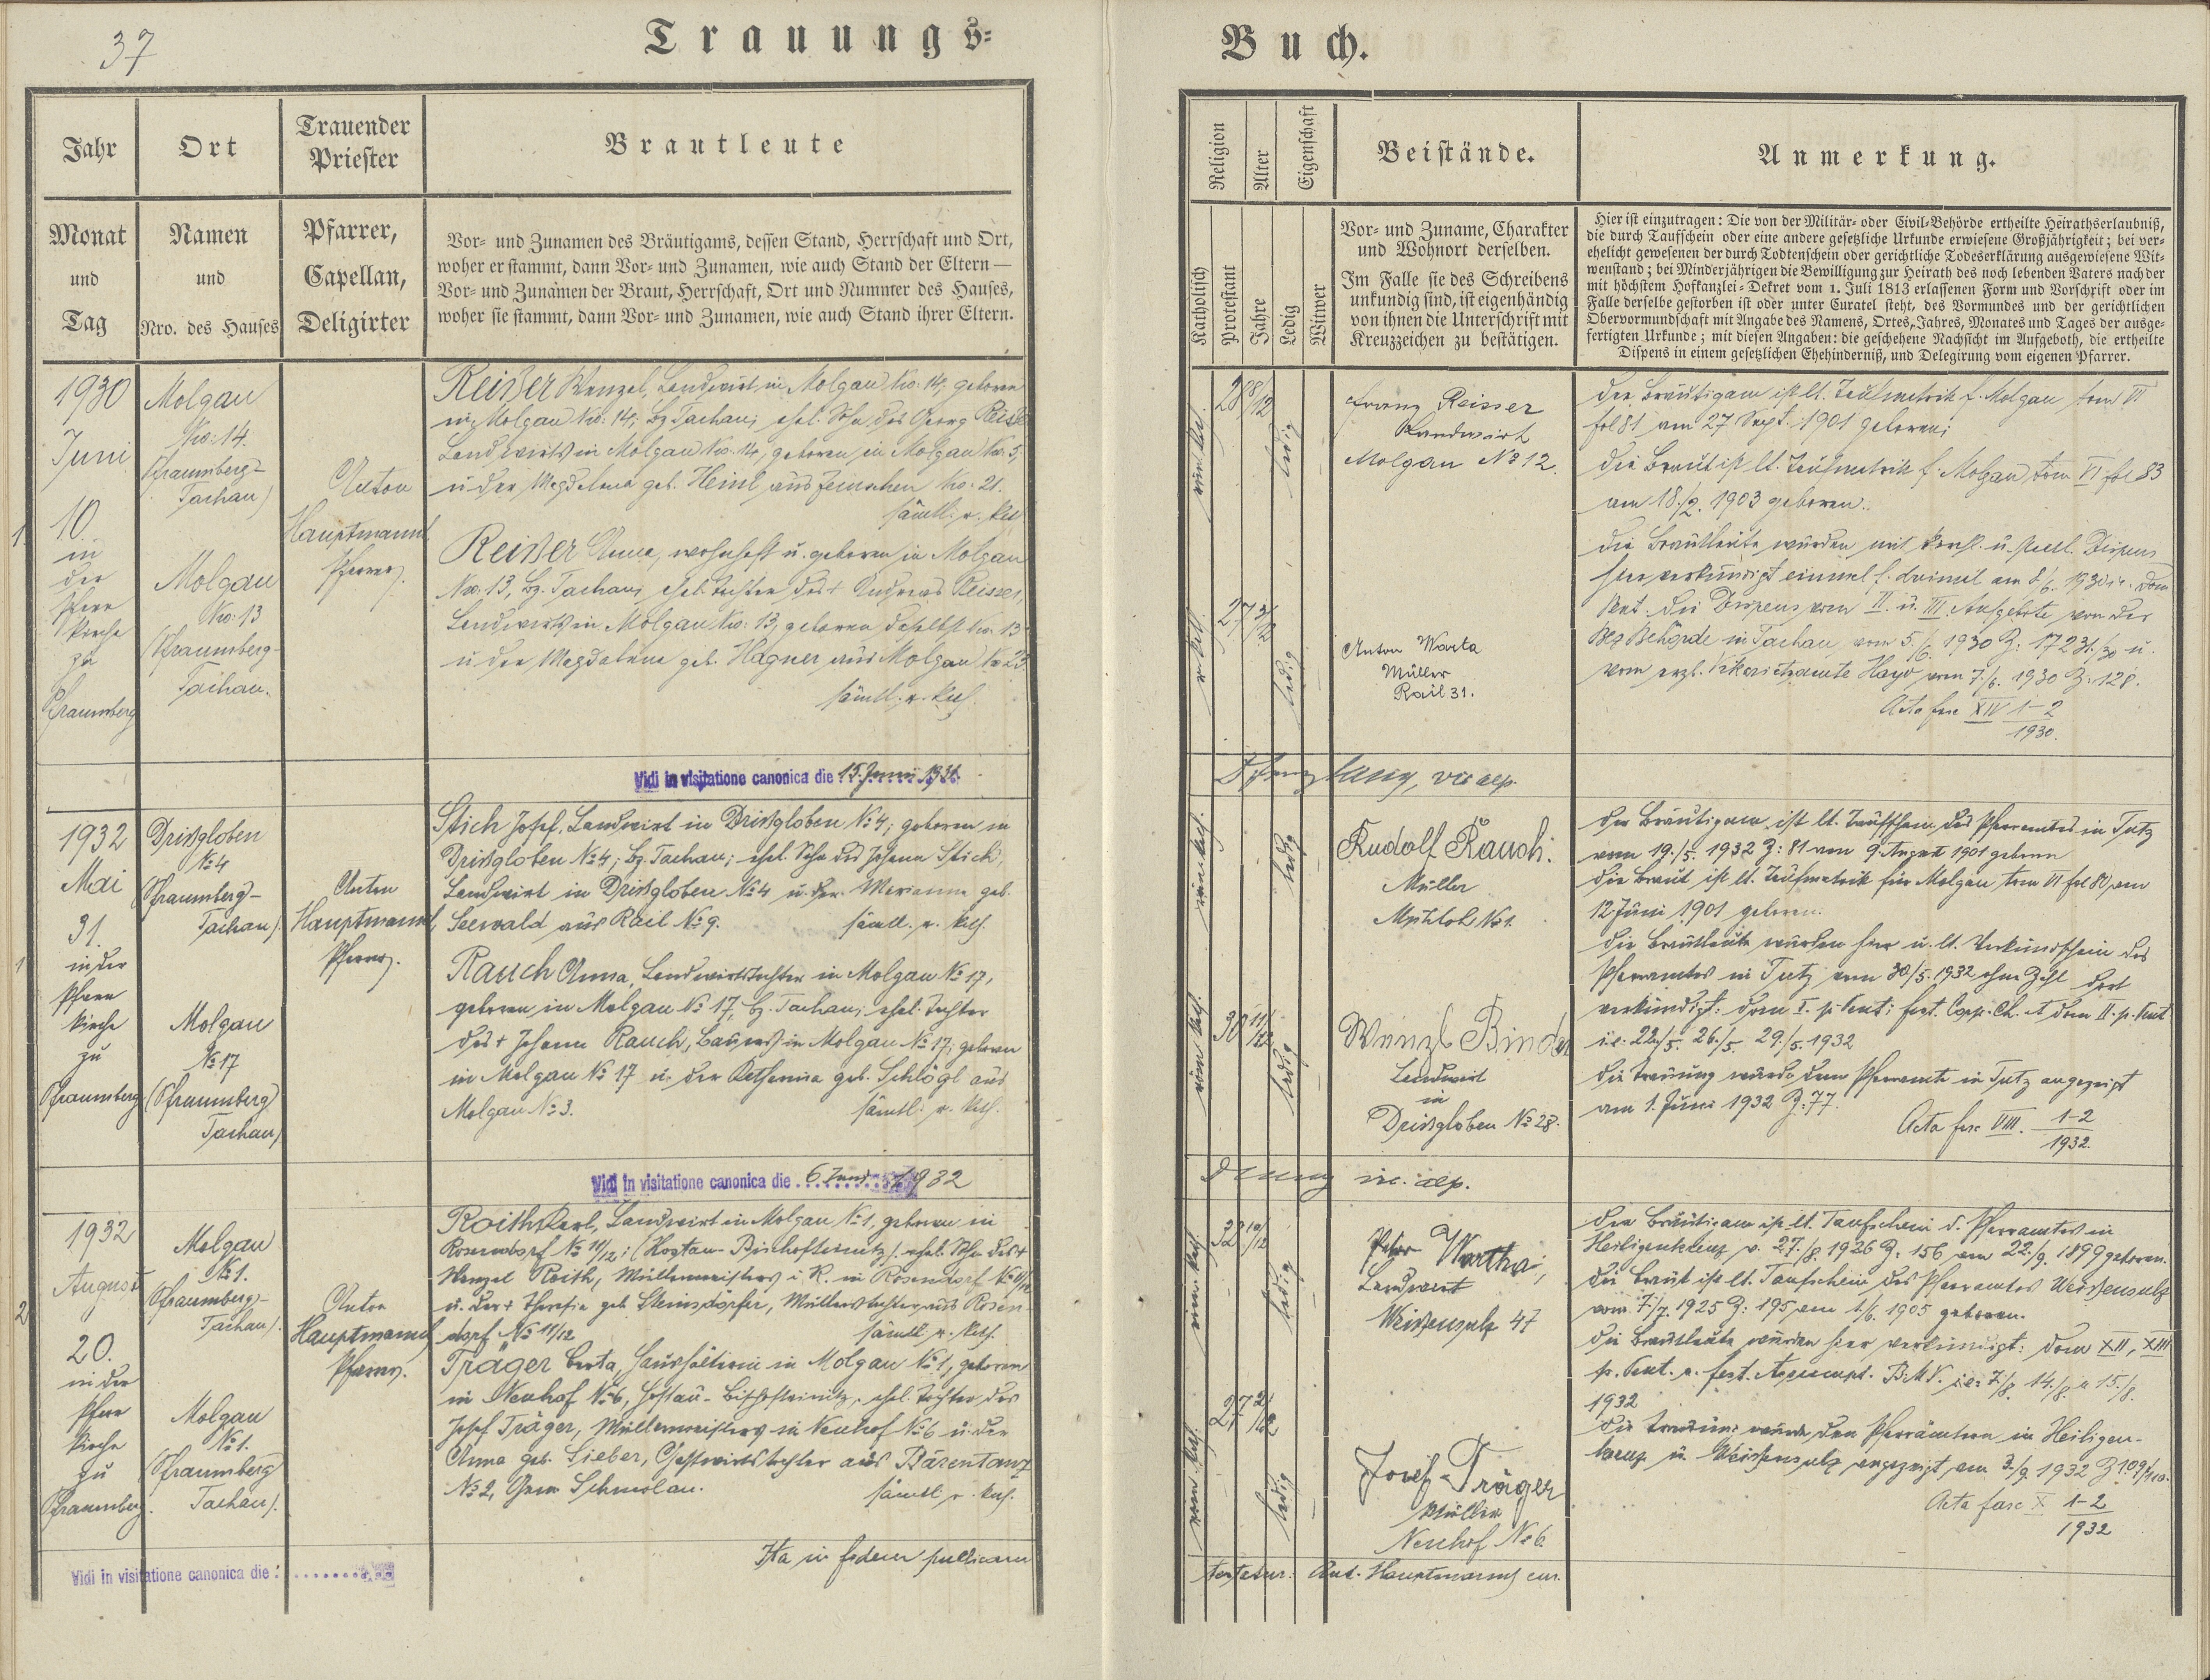 37
Trauungs=
Jahr
Monat
und
Tag
Ort
Namen
und
Nro. des Hauses
Trauender
Priester
Pfarrer,
Capellan,
Deligirter
Brautleute
Vor= und Zunamen des Bräutigams, dessen Stand, Herrschaft und Ort,
woher er stammt, dann Vor= und Zunamen, wie auch Stand der Eltern —
Vor= und Zunamen der Braut, Herrschaft, Ort und Nummer des Hauses,
woher sie stammt, dann Vor= und Zunamen, wie auch Stand ihrer Eltern.
1
1930
Juni
10.
in
der
Pfarr
kirche
zu
Pfraumberg
Molgau
No: 14.
(Pfraumberg-
Tachau)
Molgau
No: 13
(Pfraumberg-
Tachau.
Anton
Hauptmann
Pfarrer.
Reißer Wenzel, Landwirt in Molgau No: 14, geboren
in Molgau No: 14, Bz Tachau, ehel. Sohn des Georg
Landwirts in Molgau No. 14, geboren in Molgau No. 5,
u der Magdalena geb. Heinl aus No: 21.
sämtl. r. kath
Reißer Anna, wohnhaft u. geboren in Molgau
No: 13, Bz. Tachau, ehel. Tochter des + Andreas Reisser,
Landwirts in Molgau No: 13, geboren daselbst No: 13
u der Magdalena geb. Hagner aus Molgau No 23
sämtl. r. kath.
Vidi in visitatione canonica die 15. Juni 1931
1
1932
Mai
31.
in der
Pfarr
kirche
zu
Pfraumberg
Drißgloben
№ 4
(Pfraumberg-
Tachau)
Molgau
№ 17
(Pfraumberg
Tachau)
Anton
Hauptmann,
Pfarrer.
Stich Josef, Landwirt in Drißgloben № 4; geboren in
Drißgloben № 4; Bz. Tachau; ehel. Sohn des Johann Stich,
Landwirt in Drißgloben № 4 u. der Marianna geb.
Seewald aus Rail № 9. sämtl. r. kath.
Rauch Anna, Landwirtstochter in Molgau № 17,
geboren in Molgau № 17, Bz. Tachau, ehel. Tochter
des + Johann Rauch, Bauers in Molgau № 17, geboren
in Molgau № 17 u. der Katharina geb. Schlögl aus
Molgau № 3. sämtl. r. kath.
Vidi in visitatione canonica die 6. Juni 1932
2
1932
August
20.
in der
Pfarr
kirche
zu
Pfraumberg.
Molgau
№ 1.
(Pfraumberg-
Tachau).
Molgau
№ 1.
(Pfraumberg
Tachau).
Anton
Hauptmann,
Pfarrer.
Roith Karl, Landwirt in Molgau № 1, geboren in
Rosendorf № 11/12; (Hostau-Bischofteinitz), ehel. Sohn des +
Wenzel Roith, Müllermeisters i. R. in Rosendorf № 11/12
u. der + Theresia geb. Steinsdörfer, Müllerstochter aus Rosen-
dorf № 11/12 sämtl r. kath.
Träger Berta, Haushälterin in Molgau № 1, geboren
in Neuhof № 6, Hostau-Bischofteinitz, ehel. Tochter des
Josef Träger, Müllermeisters in Neuhof № 6 u. der
Anna geb. Lieber, Gastwirtstochter aus Bärentanz
№ 2, Gem Schmolau. sämtl r. kath.
Ita in fidem publicam
Vidi in visitatione canonica die
Buch.
Religion
Alter
Eigenschaft
Katholisch
Protestant
Jahre
Ledig
Witwer
Beistände.
Vor= und Zuname, Charakter
und Wohnort derselben.
Im Falle sie des Schreibens
unkundig sind, ist eigenhändig
von ihnen die Unterschrift mit
Kreuzzeichen zu bestätigen.
Anmerkung.
Hier ist einzutragen: Die von der Militär= oder Civil=Behörde ertheilte Heirathserlaubniß,
die durch Taufschein oder eine andere gesetzliche Urkunde erwiesene Großjährigkeit; bei ver=
ehelicht gewesenen der durch Todtenschein oder gerichtliche Todeserklärung ausgewiesene Wit=
wenstand; bei Minderjährigen die Bewilligung zur Heirath des noch lebenden Vaters nach der
mit höchstem Hofkanzlei=Dekret vom 1. Juli 1813 erlassenen Form und Vorschrift oder im
Falle derselbe gestorben ist oder unter Curatel steht, des Vormundes und der gerichtlichen
Obervormundschaft mit Angabe des Namens, Ortes, Jahres, Monates und Tages der ausge=
fertigten Urkunde; mit diesen Angaben: die geschehene Nachsicht im Aufgeboth, die ertheilte
Dispens in einem gesetzlichen Ehehinderniß, und Delegirung vom eigenen Pfarrer.
28 8/12
ledig
Franz Reisser
Landwirt
Molgau № 12.
27 3/12
ledig
Anton Warta
Müller
Rail 31.
Der Bräutigam ist lt. Taufmatrik f. Molgau tom VI
fol 81 am 27 Sept. 1901 geboren;
Die Braut ist lt. Taufmatrik f. Molgau tom VI fol 83
am 18./2. 1903 geboren.
Die Brautleute wurden mit kirchl. u. staatl. Dispens
hier verkündigt einmal f. dreimal am 8./6. 1930 i.e. Dom
Pent. Die Dispens vom II. u. III. Aufgebote von der
Bez Behörde in Tachau vom 5./6. 1930 Z: 17231/30 u.
vom erzb. Vikariatsamte Hayd vom 7./6. 1930 Z. 128.
Acta fasc XIV 1-2
1930.
vic aep.
röm kath.
ledig
Rudolf Rauch.
Müller
№ 1.
röm kath.
30 11/12
ledig
Wenzl Binder
Landwirt
in
Drißgloben № 28.
Der Bräutigam ist lt. Taufschein des Pfarramtes in Tutz
vom 19./5. 1932 Z: 81 am 9. August 1901 geboren
Die Braut ist lt. Taufmatrik für Molgau tom VI fol 80 am
12 Juni 1901 geboren.
Die Brautleute wurden hier u. lt. Verkündschein des
Pfarramtes in Tutz vom 30./5. 1932 ohne Zahl dort
verkündigt: Dom I. p. Pent; fest. Corp. Ch. et Dom II. p. Pent
i.e. 22./5. 26./5. 29./5. 1932
Die Trauung wurde dem Pfarramte in Tutz angezeigt
am 1. Juni 1932 Z: 77.
Acta fasc VIII. 1-2
1932.
vic. aep.
röm kath.
32 10/12
ledig
Peter Wartha,
Landwirt
Weißensulz 47
röm kath.
27 2/12
ledig
Josef Träger
Müller
Neuhof № 6.
Der Bräutigam ist lt. Taufschein d. Pfarramtes in
Heiligenkreuz v. 27./8. 1926 Z: 156 am 22./9. 1899 geboren.
Die Braut ist lt. Taufschein des Pfarramtes Weißensulz
vom 7./7. 1925 Z: 195 am 1./6. 1905 geboren.
Die Brautleute wurden hier verkündigt: Dom XII, XIII
p. Pent. u. fest. Assumpt. B.M.V. i.e. 7./8. 14./8. u 15./8.
1932
Die Trauung wurde den Pfarrämtern in Heiligen-
kreuz u. Weißensulz angezeigt am 3./9 1932 Z 109/110.
Acta fasc X 1-2
1932
testatur. Ant. Hauptmann cur.